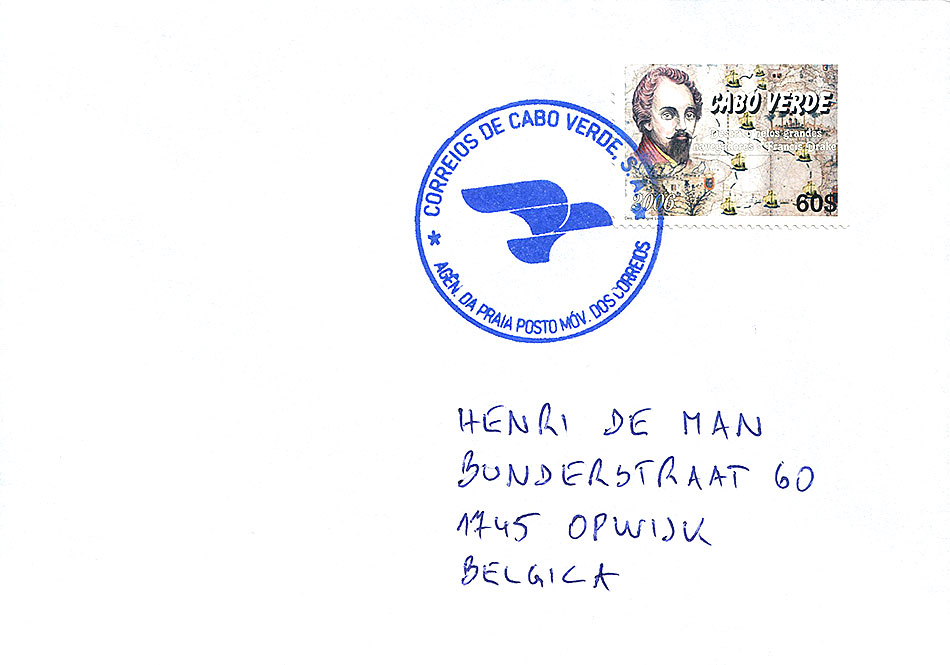 CORREIOS DE CABO VERDE, S.A.
AGÊN. DA PRAIA POSTO MÓV. DOS CORREIOS
CABO VERDE
pelos grandes
Francis Drake
2006
60$
HENRI DE MAN
BUNDERSTRAAT 60
1745 OPWIJK
BELGICA